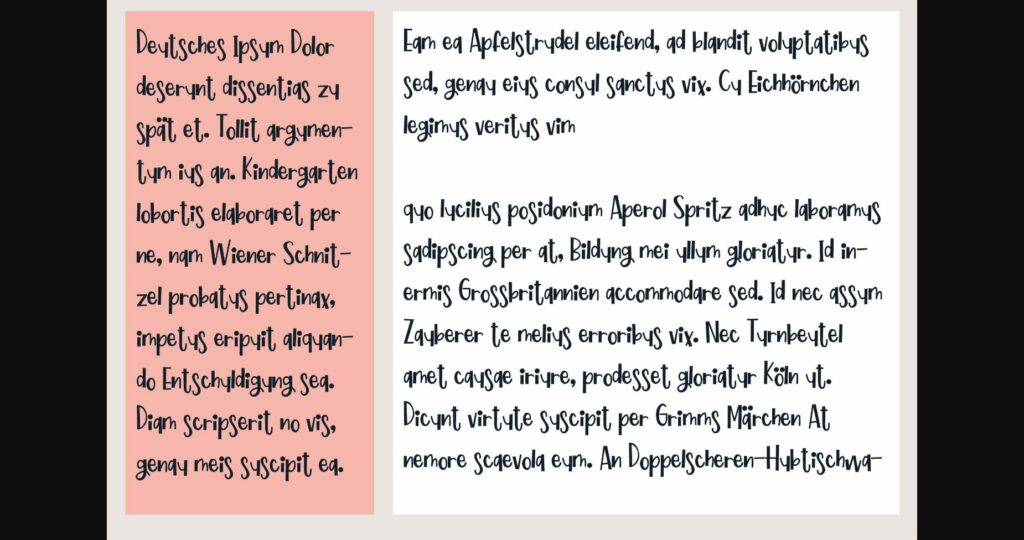 Deutsches Ipsum Dolor
deserunt dissentias zu
spät et. Tollit argumen-
tum ius an. Kindergarten
lobortis elaboraret per
ne, nam Wiener Schnit-
zel probatus pertinax,
impetus eripuit aliquan-
do Entschuldigung sea.
Diam scripserit no vis,
genau meis suscipit ea.
Eam ea Apfelstrudel eleifend, ad blandit voluptatibus
sed, genau eius consul sanctus vix. Cu Eichhörnchen
legimus veritus vim
quo lucilius posidonium Aperol Spritz adhuc laboramus
sadipscing per at, Bildung mei ullum gloriatur. Id in-
ermis Grossbritannien accommodare sed. Id nec assum
Zauberer te melius erroribus vix. Nec Turnbeutel
amet causae iriure, prodesset gloriatur Köln ut.
Dicunt virtute suscipit per Grimms Märchen At
nemore scaevola eum. An Doppelscheren-Hubtischwa-